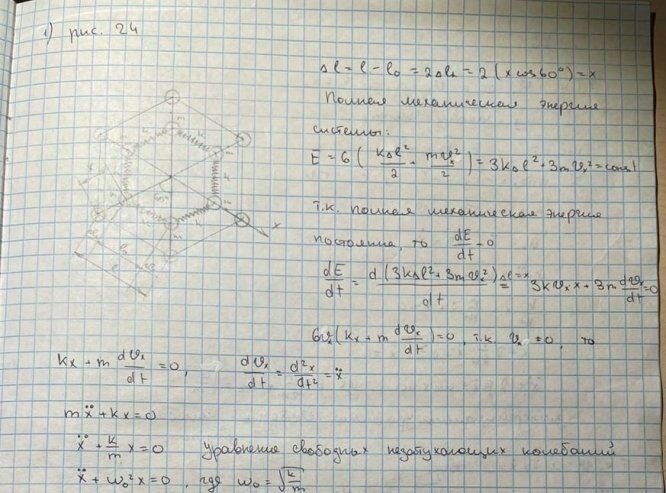 1) рис. 24
Δl = l - l₀ = 2Δl₁ = 2 (x cos 60°) = x
Полная механическая энергия
системы:
E = 6 ( kΔl²/2 + mvₓ²/2 ) = 3kΔl² + 3mvₓ² = const
т.к. полная механическая энергия
постоянна, то dE/dt = 0
dE/dt = d(3kΔl² + 3mvₓ²)/dt Δl=x =
6vₓ(kx + m dvₓ/dt) = 0, т.к. vₓ ≠ 0, то
kx + m dvₓ/dt = 0, dvₓ/dt = d²x/dt² = ẍ
mẍ + kx = 0
ẍ + k/m x = 0 уравнение свободных незатухающих колебаний
ẍ + ω₀²x = 0, где ω₀ = √(k/m)
60°
x
l₀
l